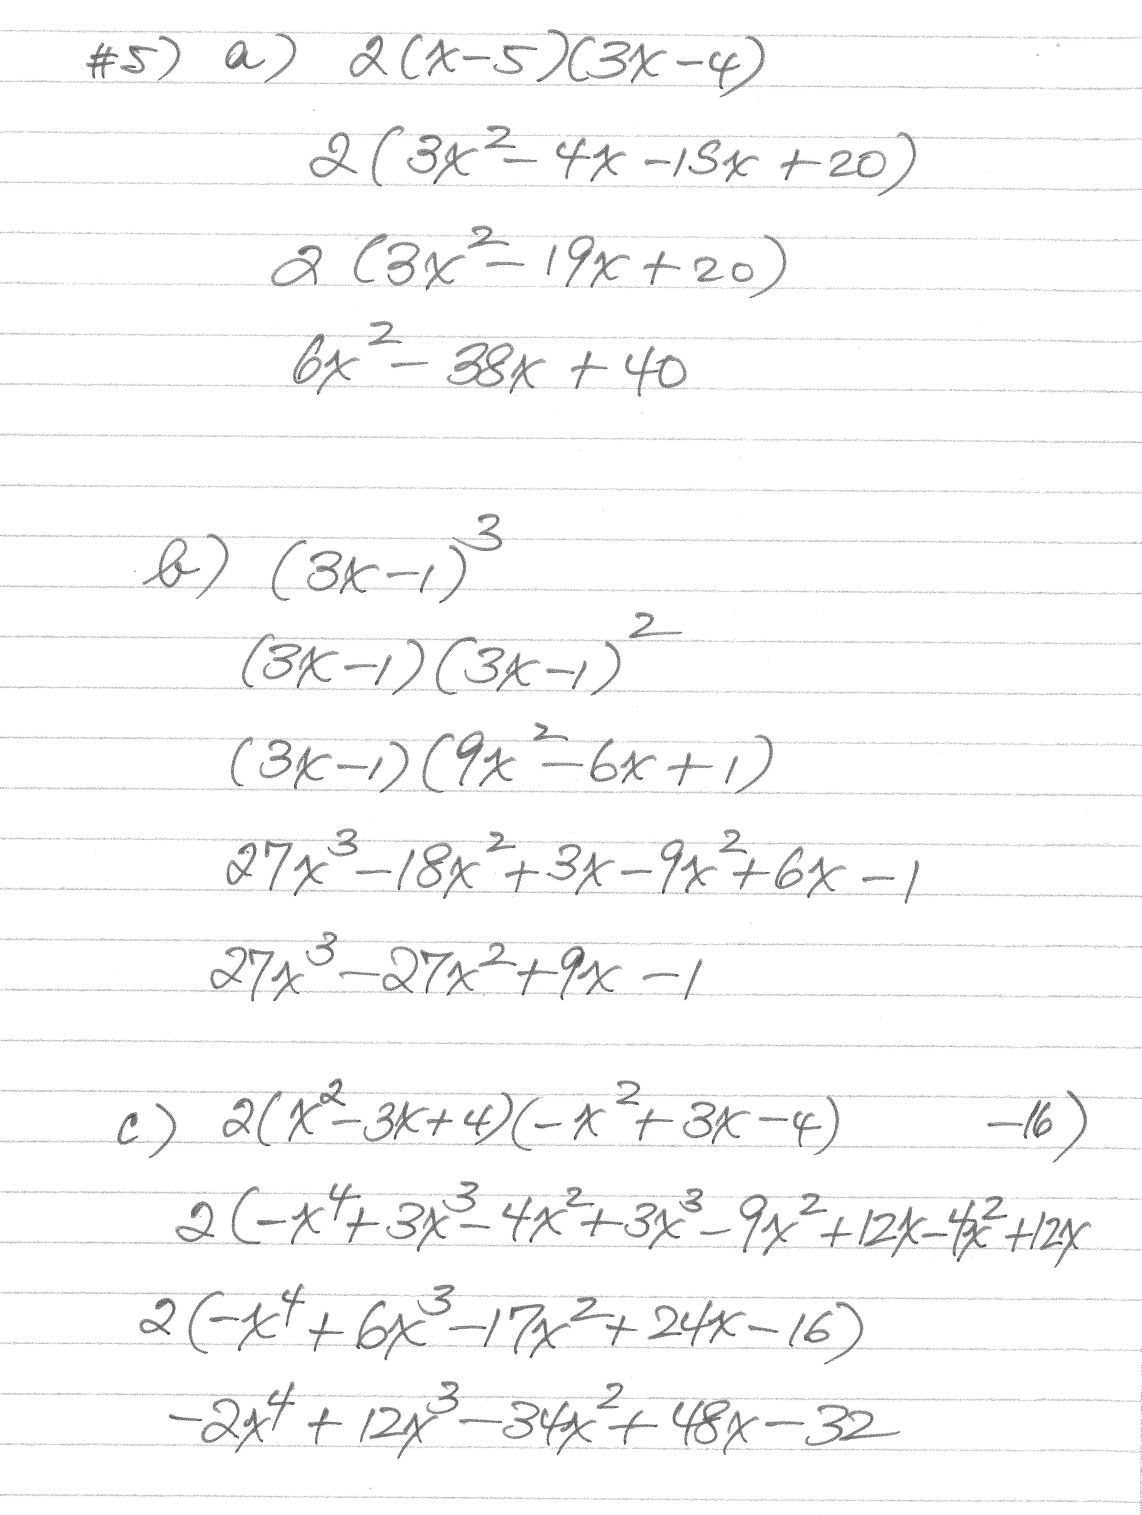 #5) a) 2(x-5)(3x-4)
2(3x²-4x-15x+20)
2(3x²-19x+20)
6x²-38x+40
b) (3x-1)³
(3x-1)(3x-1)²
(3x-1)(9x²-6x+1)
27x³-18x²+3x-9x²+6x-1
27x³-27x²+9x-1
c) 2(x²-3x+4)(-x²+3x-4) -16)
2(-x⁴+3x³-4x²+3x³-9x²+12x-4x²+12x
2(-x⁴+6x³-17x²+24x-16)
-2x⁴+12x³-34x²+48x-32